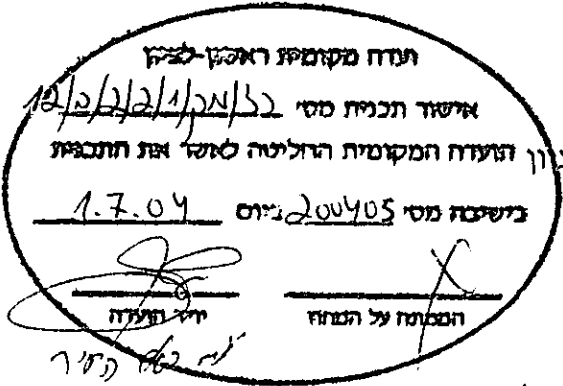 ועדה מקומית ראשון-לציון
אישור תכנית מס' רצ/מק/1/2/2/ב/12
הועדה המקומית החליטה לאשר את התכנית
בישיבה מס' 200405 ביום 1.7.04
הממונה על המחוז יו"ר הועדה